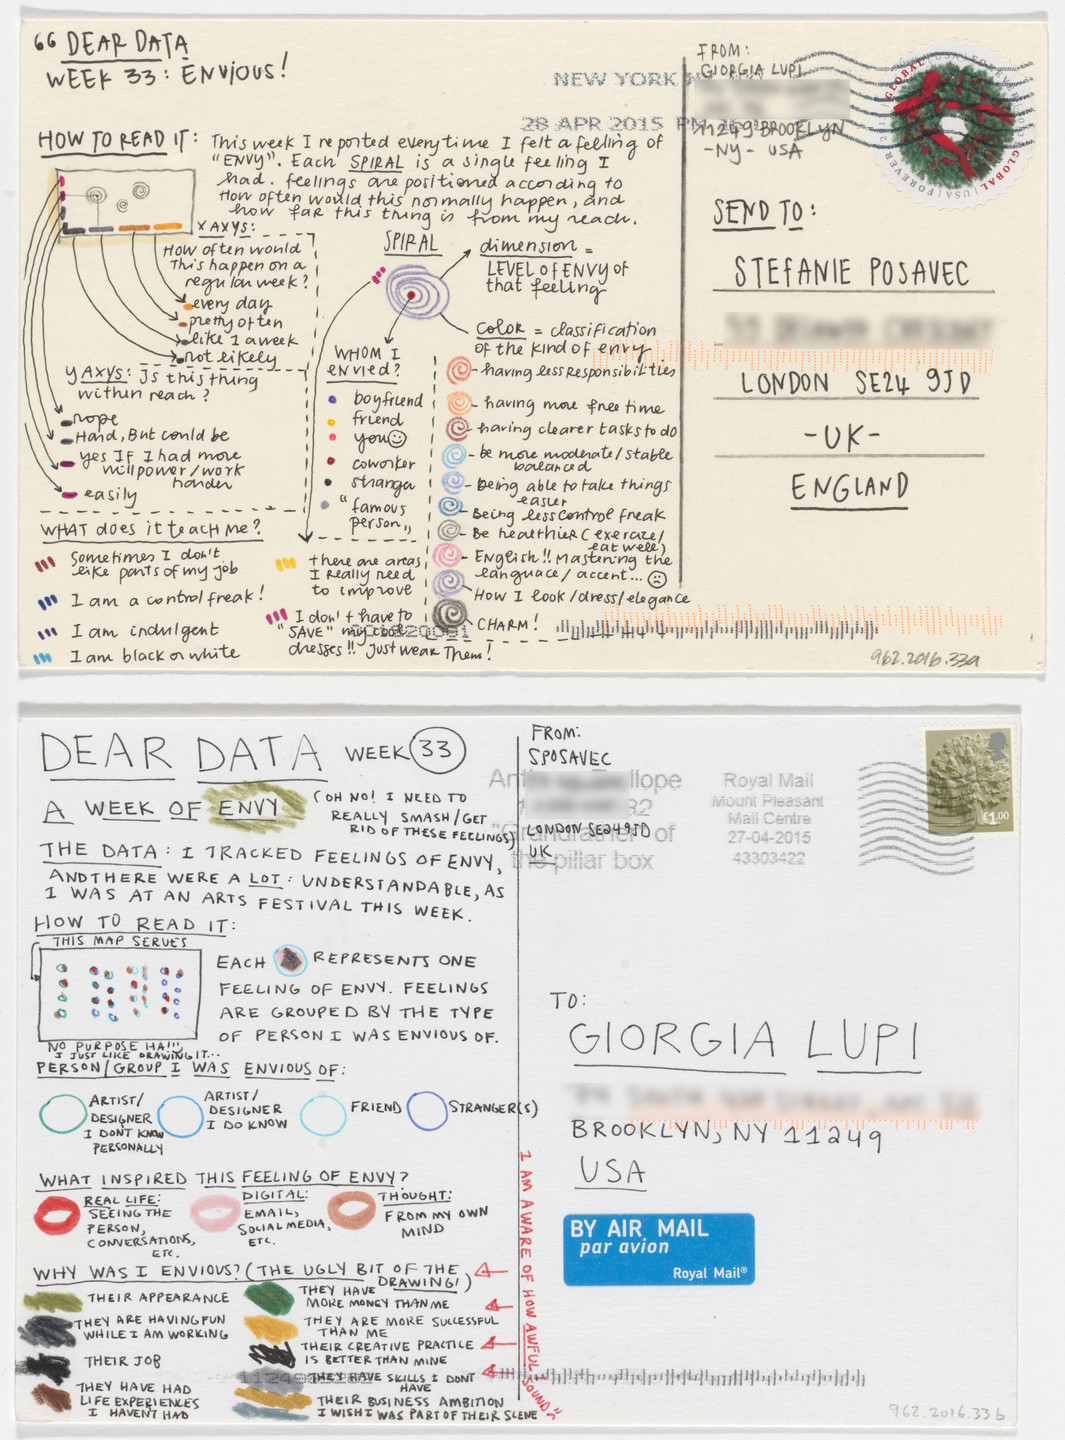 “ DEAR DATA
WEEK 33: ENVIOUS!
HOW TO READ IT:
This week I reported everytime I felt a feeling of
"ENVY". Each SPIRAL is a single feeling I
had. feelings are positioned according to
How often would this normally happen, and
how far this thing is from my reach.
X AXYS:
HOW often would
This happen on a
regular week?
every day
pretty often
like 1 a week
not likely
Y AXYS: Is this thing
within reach?
nope
Hard, But could be
yes If I had more
willpower/work
harder
easily
SPIRAL
dimension =
LEVEL of ENVY of
that feeling
Color = classification
of the kind of envy
WHOM I
envied?
boyfriend
friend
you
coworker
stranger
"famous
person„
having less responsibilities
having more free time
having clearer tasks to do
be more moderate/stable
balanced
being able to take things
easier
Being less control freak
Be healthier (exercise/
eat well)
English!! Mastering the
language/accent...
How I look/dress/elegance
CHARM!
WHAT does it teach me?
Sometimes I don't
like parts of my job
I am a control freak!
I am indulgent
I am black or white
there are areas
I really need
to improve
I don't have to
"SAVE" my cool
dresses!! Just wear Them!
FROM:
GIORGIA LUPI
11249 BROOKLYN
-NY- USA
NEW YORK
28 APR 2015 PM
GLOBAL
USA FOREVER
GLOBAL
SEND TO:
STEFANIE POSAVEC
LONDON SE24 9JD
-UK-
ENGLAND
962.2016.33a
DEAR DATA WEEK 33
A WEEK OF ENVY
(OH NO! I NEED TO
REALLY SMASH/GET
RID OF THESE FEELINGS)
THE DATA: I TRACKED FEELINGS OF ENVY,
AND THERE WERE A LOT: UNDERSTANDABLE, AS
I WAS AT AN ARTS FESTIVAL THIS WEEK.
HOW TO READ IT:
THIS MAP SERVES
NO PURPOSE HA!!!
I JUST LIKE DRAWING IT...
EACH REPRESENTS ONE
FEELING OF ENVY. FEELINGS
ARE GROUPED BY THE TYPE
OF PERSON I WAS ENVIOUS OF.
PERSON/GROUP I WAS ENVIOUS OF:
ARTIST/
DESIGNER
I DONT KNOW
PERSONALLY
ARTIST/
DESIGNER
I DO KNOW
FRIEND
STRANGER(S)
WHAT INSPIRED THIS FEELING OF ENVY?
REAL LIFE:
SEEING THE
PERSON,
CONVERSATIONS,
ETC.
DIGITAL:
EMAIL,
SOCIAL MEDIA,
ETC.
THOUGHT:
FROM MY OWN
MIND
WHY WAS I ENVIOUS? (THE UGLY BIT OF THE
DRAWING!)
THEIR APPEARANCE
THEY ARE HAVING FUN
WHILE I AM WORKING
THEIR JOB
THEY HAVE HAD
LIFE EXPERIENCES
I HAVEN'T HAD
THEY HAVE
MORE MONEY THAN ME
THEY ARE MORE SUCCESSFUL
THAN ME
THEIR CREATIVE PRACTICE
IS BETTER THAN MINE
THEY HAVE SKILLS I DONT
HAVE
THEIR BUSINESS AMBITION
I WISH I WAS PART OF THEIR SCENE
I AM AWARE OF HOW AWFUL I SOUND
FROM:
SPOSAVEC
LONDON SE249JD
UK
"Grandfather" of
the pillar box
Royal Mail
Mount Pleasant
Mail Centre
27-04-2015
43303422
£1.00
TO:
GIORGIA LUPI
BROOKLYN, NY 11249
USA
BY AIR MAIL
par avion
Royal Mail®
962.2016.33b